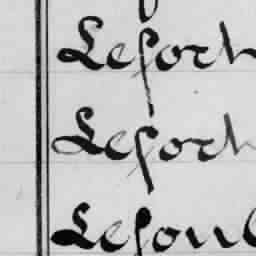 Lefort
Lefort
Lefou